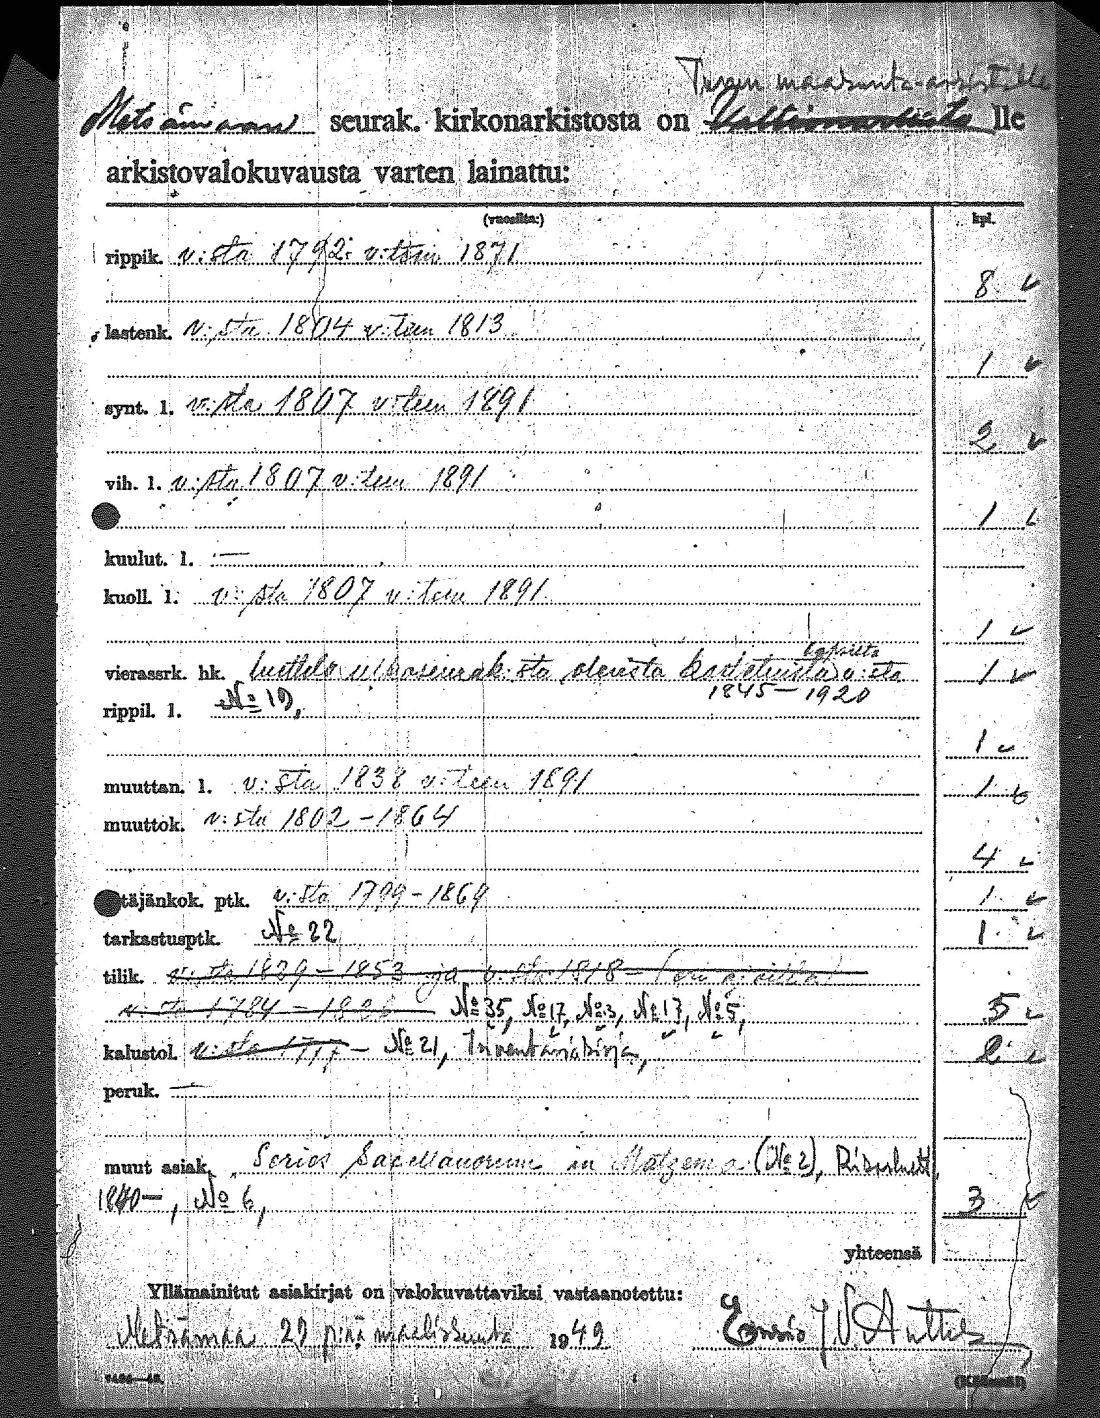 Turun maakunta-arkistolle
Metsämaan seurak. kirkonarkistosta on Valtionarkisto lle
arkistovalokuvausta varten lainattu:
(vuosilta:) kpl.
rippik. v:sta 1792 v:teen 1871
8
lastenk. v:sta 1804 v:teen 1813
1
synt. l. v:sta 1807 v:teen 1891
2
vih. l. v:sta 1807 v:teen 1891
1
kuulut. l. —
kuoll. l. v:sta 1807 v:teen 1891
1
luettelo ulkoseurak:sta olevista v:sta
vierassrk. hk. 1845–1920 1
rippil. l. № 19,
1
muuttan. l. v:sta 1838 v:teen 1891 1
muuttok. v:sta 1802–1864
4
täjänkok. ptk. v:sta 1799–1869 1
tarkastusptk. № 22 1
tilik. v:sta 1839–1853 ja v:sta 1818–
v:sta 1784 – № 35, № 17, № 3, № 13, № 5, 5
kalustol. v:sta 1777– № 21, Inventariokirja, 2
peruk. —
muut asiak. Series Sacellanorum in Mätzemå (№ 2),
1840–, № 6, 3
yhteensä
Yllämainitut asiakirjat on valokuvattaviksi vastaanotettu:
Metsämaa 29 p:nä maaliskuuta 1949